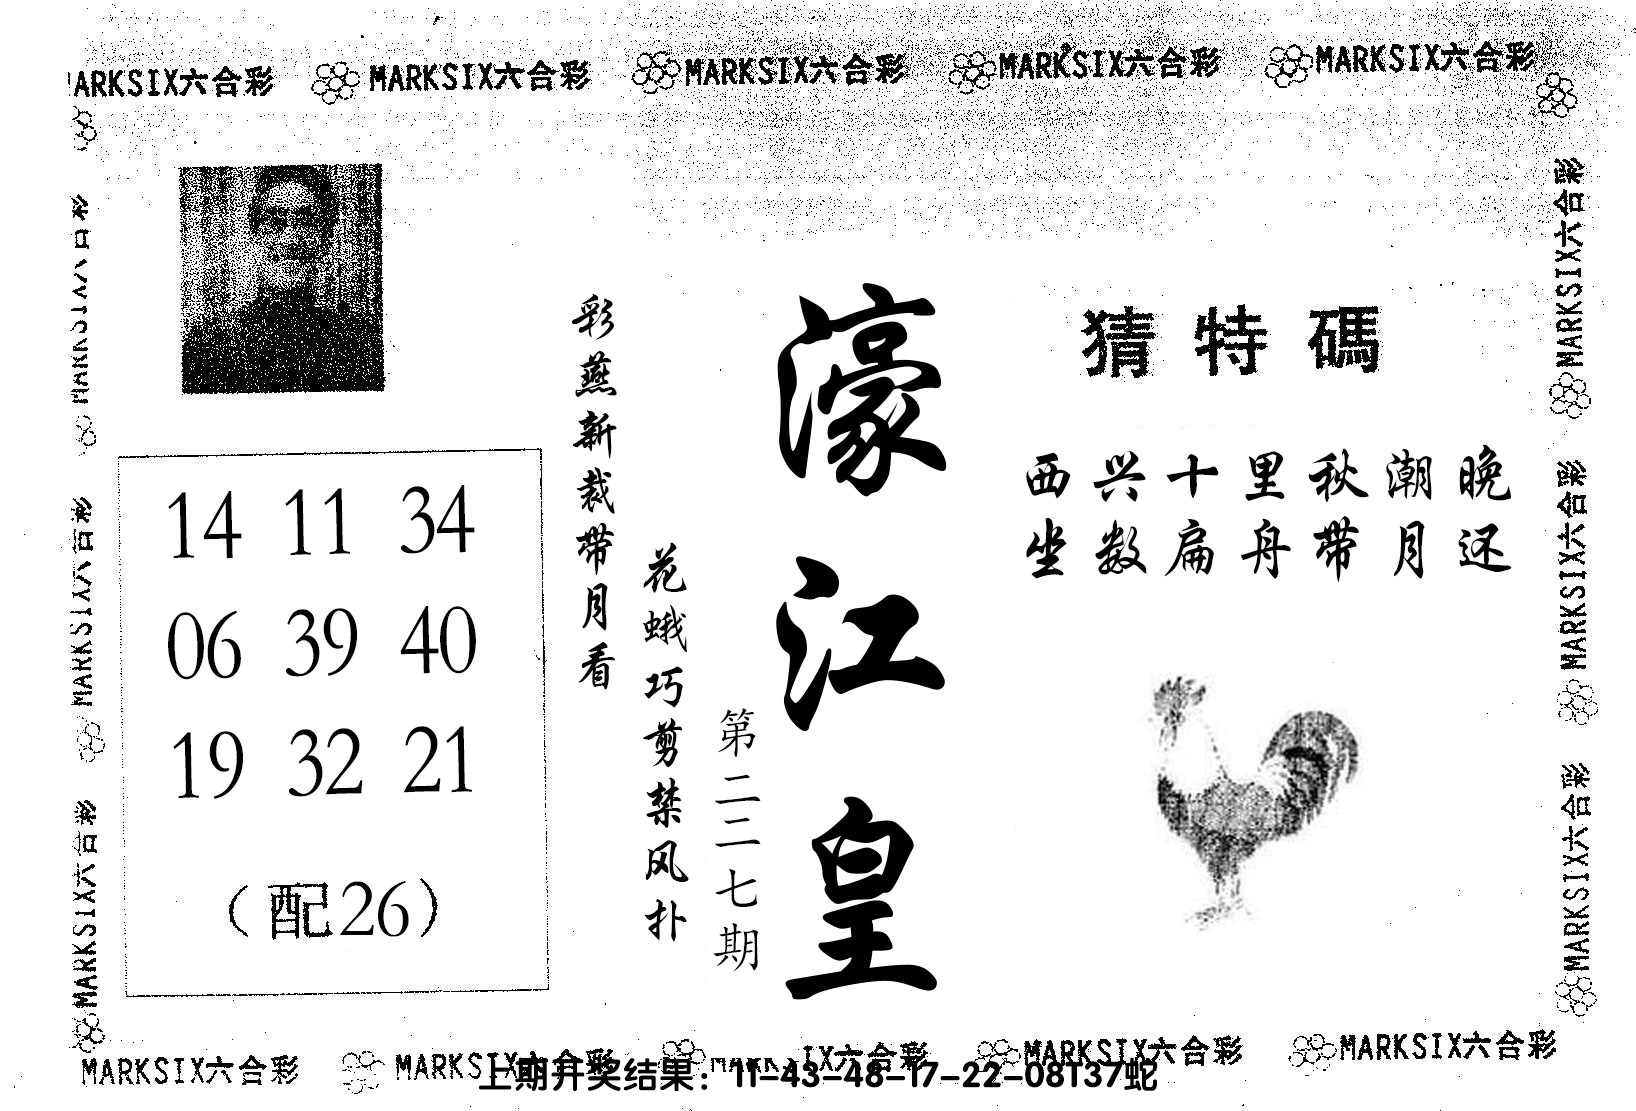 MARKSIX六合彩 MARKSIX六合彩 MARKSIX六合彩 MARKSIX六合彩 MARKSIX六合彩
猜特碼
西兴十里秋潮晚
坐数扁舟带月还
濠江皇
第二二七期
彩燕新裁带月看
花蛾巧剪禁风扑
14 11 34
06 39 40
19 32 21
（配26）
MARKSIX六合彩
MARKSIX六合彩
MARKSIX六合彩
MARKSIX六合彩
MARKSIX六合彩
MARKSIX六合彩
MARKSIX六合彩 MARKSIX六合彩 MARKSIX六合彩 MARKSIX六合彩 MARKSIX六合彩
上期开奖结果：11-43-48-17-22-08T37蛇